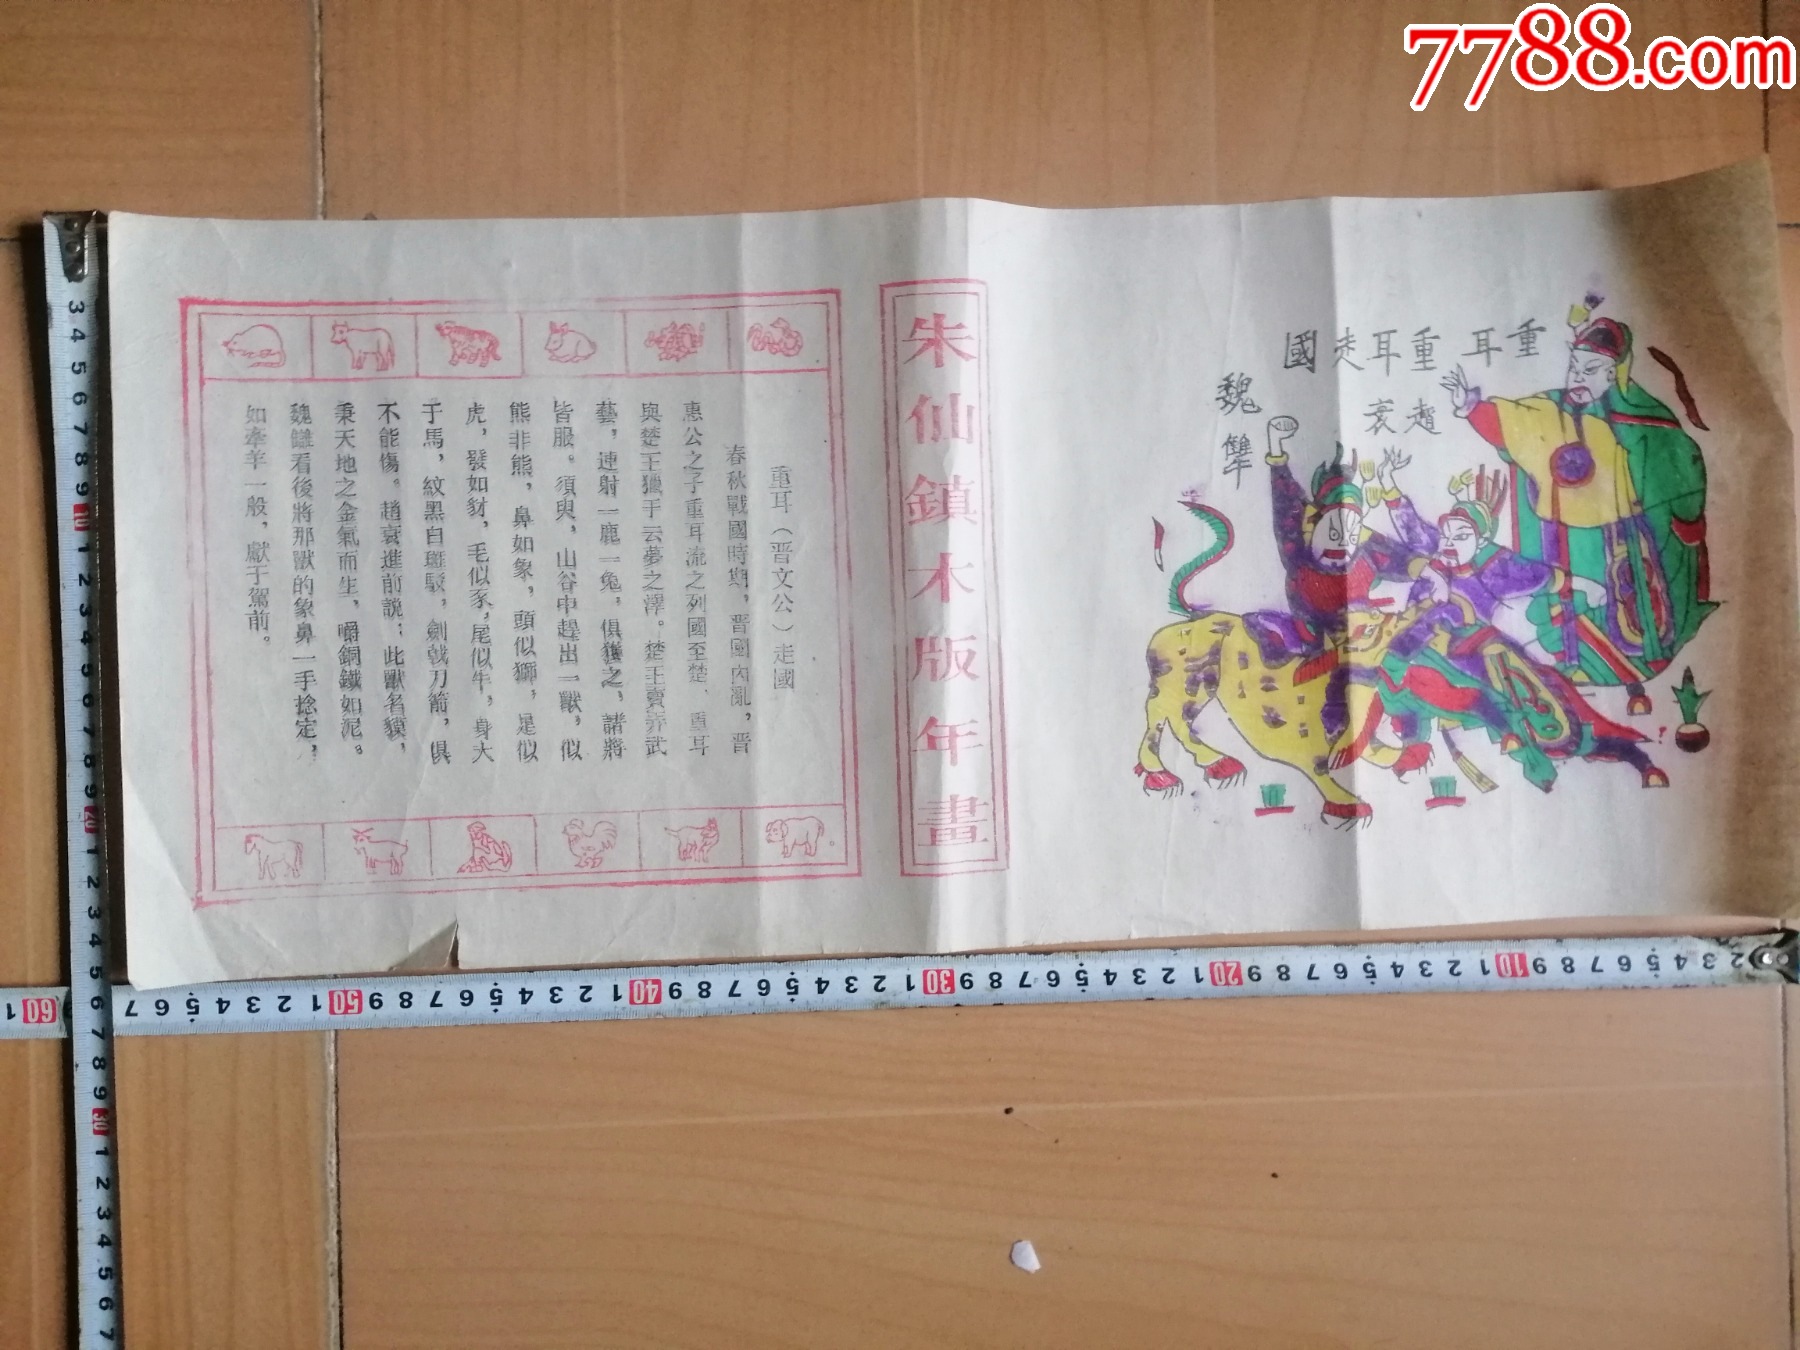 7788.com
重耳
重耳走國
趙衰
魏犨
朱仙鎮木版年畫
重耳（晋文公）走國
春秋戰國時期，晋國內亂，晋
惠公之子重耳流之列國至楚、重耳
與楚王獵于云夢之澤。楚王賣弄武
藝，連射一鹿一兔，俱獲之，諸將
皆服。須臾，山谷中趕出一獸，似
熊非熊，鼻如象，頭似獅，足似
虎，發如豺，毛似豕，尾似牛，身大
于馬，紋黑白斑駁，劍戟刀箭，俱
不能傷。趙衰進前說：此獸名貘，
秉天地之金氣而生，嚼銅鐵如泥。
魏犨看後將那獸的象鼻一手捻定，
如牽羊一般，獻于駕前。